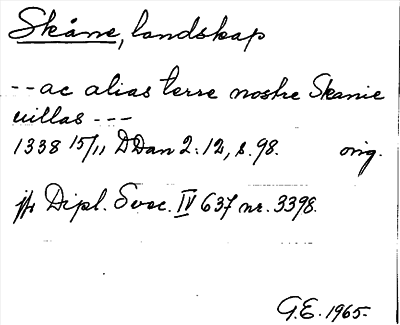 Skåne, landskap
-- ac alias terre nostre Skanie
uillas ---
1338 15/11 DDan 2:12, s. 98. orig.
jfr Dipl. Svec. IV 637 nr. 3398.
G.E. 1965.